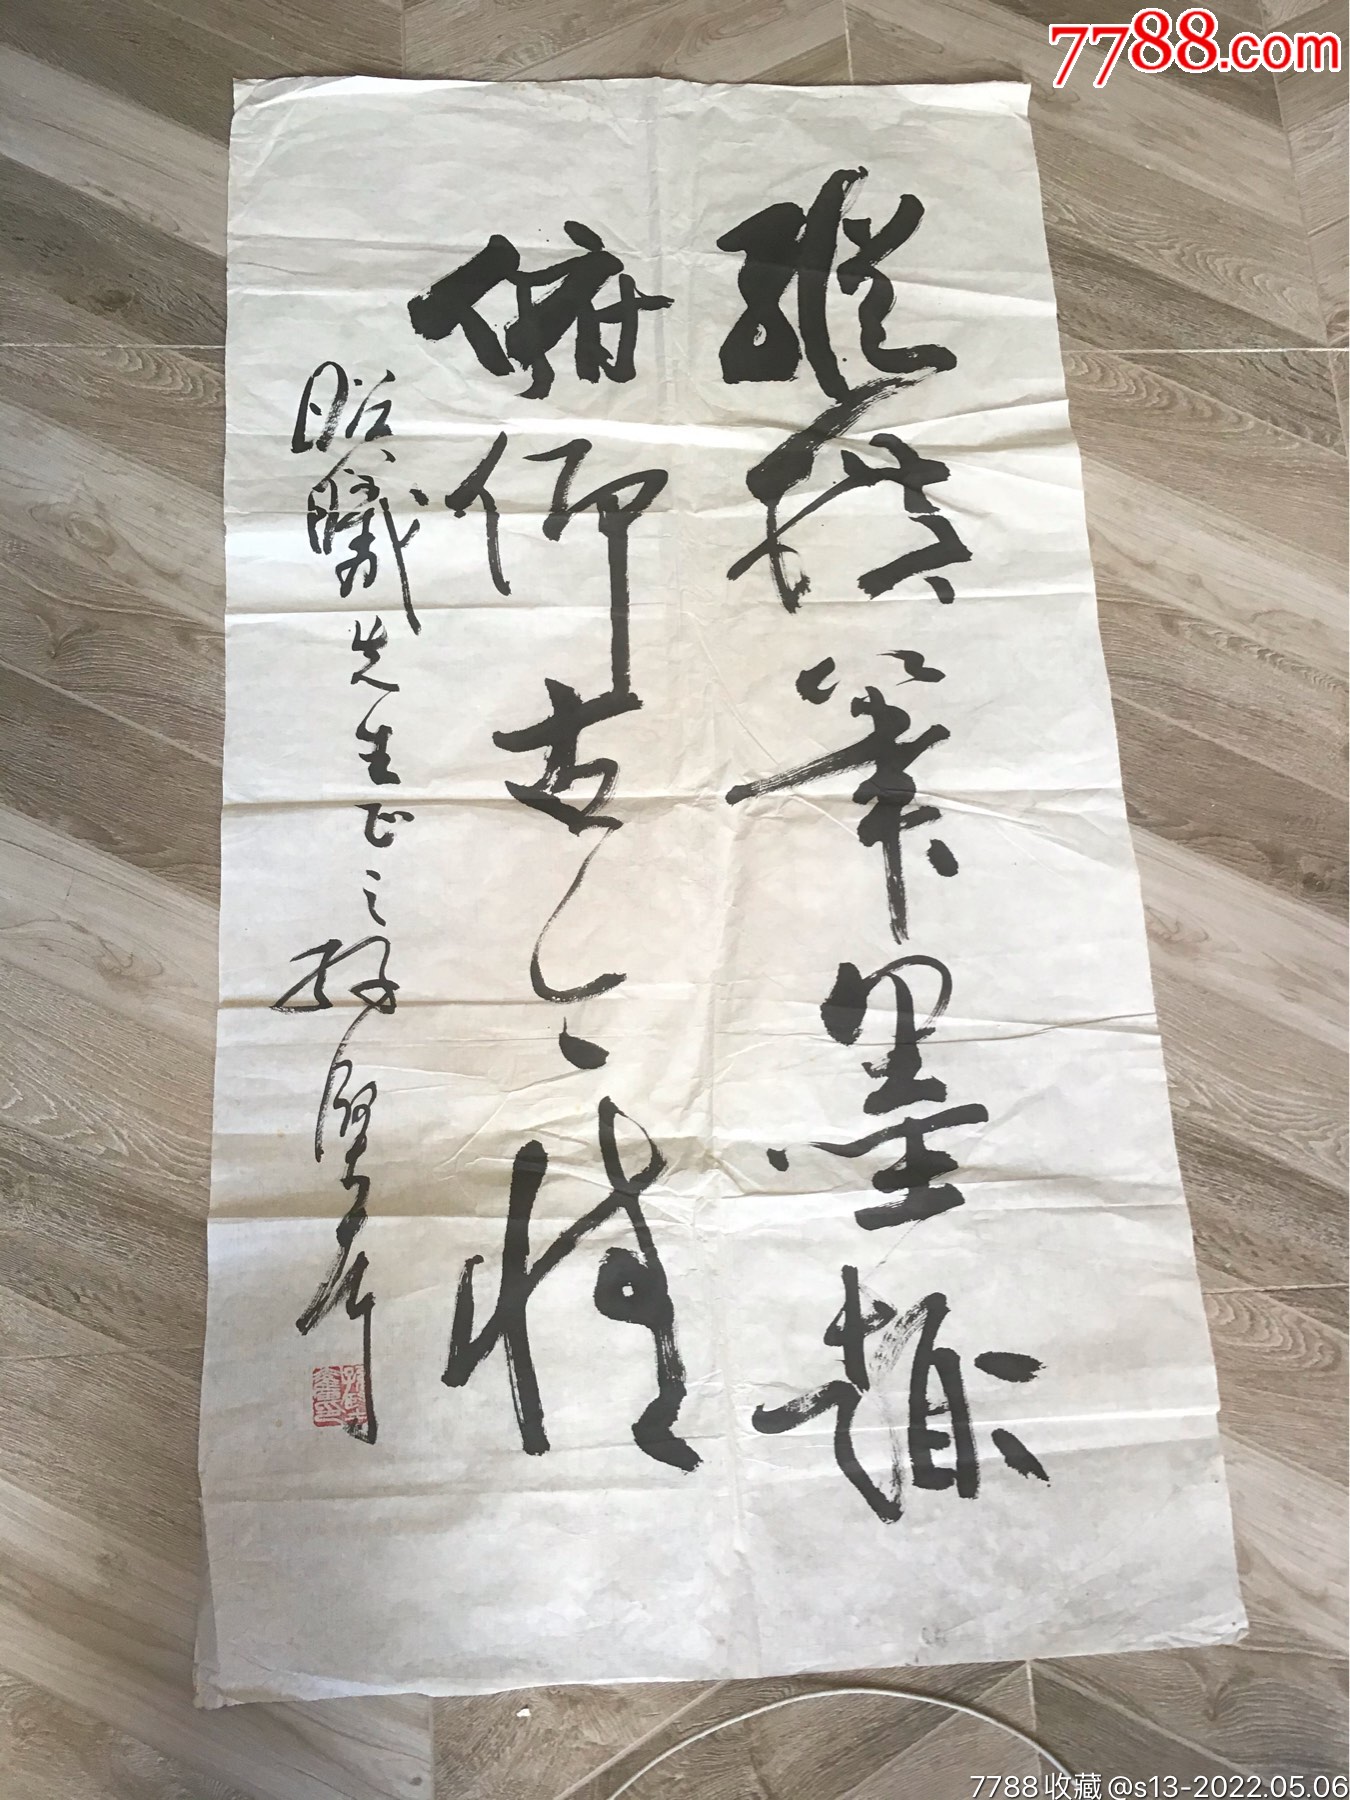 7788.com
縱横筆墨趣
俯仰古今情
昭曦先生正之 孫堅奮
7788收藏@s13-2022.05.06